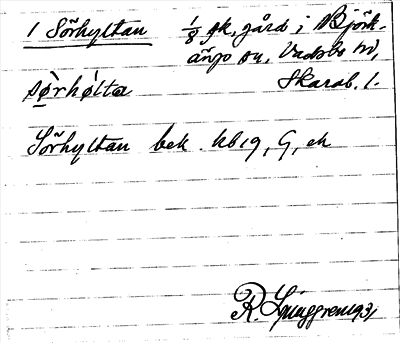 1 Sörhyltan 1/8 gk, gård i Björk-
ängs sn, Vadsbo hd,
Skarab. l.
sø̀rhø̀lta
Sörhyltan bek. kb 19, G, ek
R. Ljunggren 1931